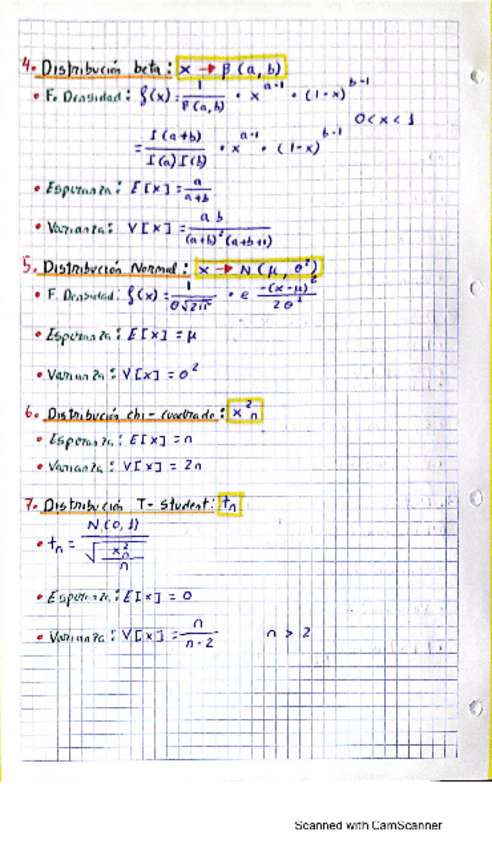 4. Distribución beta: x → β(a, b)
• F. Densidad: f(x) = 1/β(a,b) · x^(a-1) · (1-x)^(b-1)
0 < x < 1
= Γ(a+b)/Γ(a)Γ(b) · x^(a-1) · (1-x)^(b-1)
• Esperanza: E[x] = a/(a+b)
• Varianza: V[x] = ab/((a+b)²(a+b+1))
5. Distribución Normal: x → N(μ, σ²)
• F. Densidad: f(x) = 1/(σ√2π) · e^(-(x-μ)²/2σ²)
• Esperanza: E[x] = μ
• Varianza: V[x] = σ²
6. Distribución chi-cuadrado: x²n
• Esperanza: E[x] = n
• Varianza: V[x] = 2n
7. Distribución T-student: tn
• tn = N(0,1)/√(x²n/n)
• Esperanza: E[x] = 0
• Varianza: V[x] = n/(n-2) n > 2
Scanned with CamScanner